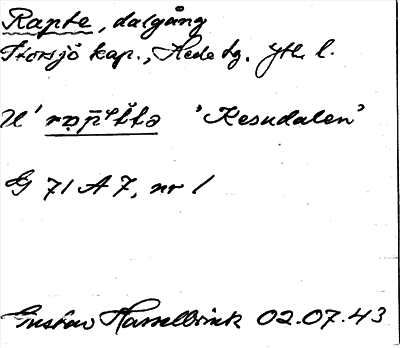 Rapte, dalgång
Storsjö kap., Hede tg. Jtl. l.
U' 'Kesudalen'
G 71 A 7, nr 1
Gustav Hasselbrink 02.07.43